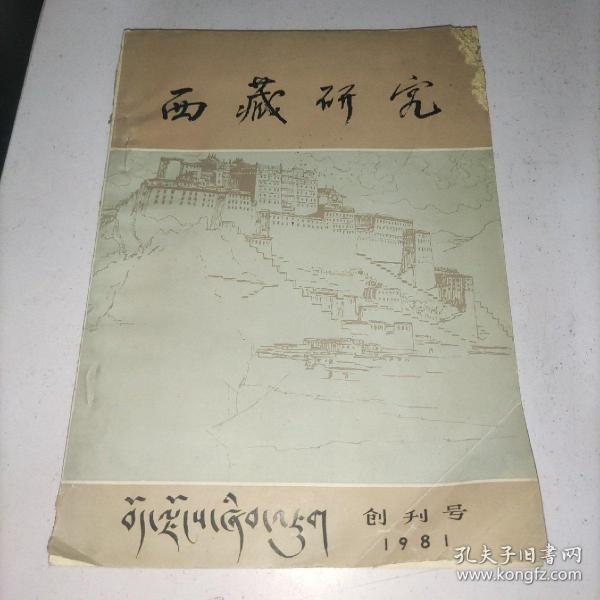 西藏研究
བོད་ལྗོངས་ཞིབ་འཇུག
创刊号
1981
孔夫子旧书网
www.kongfz.com